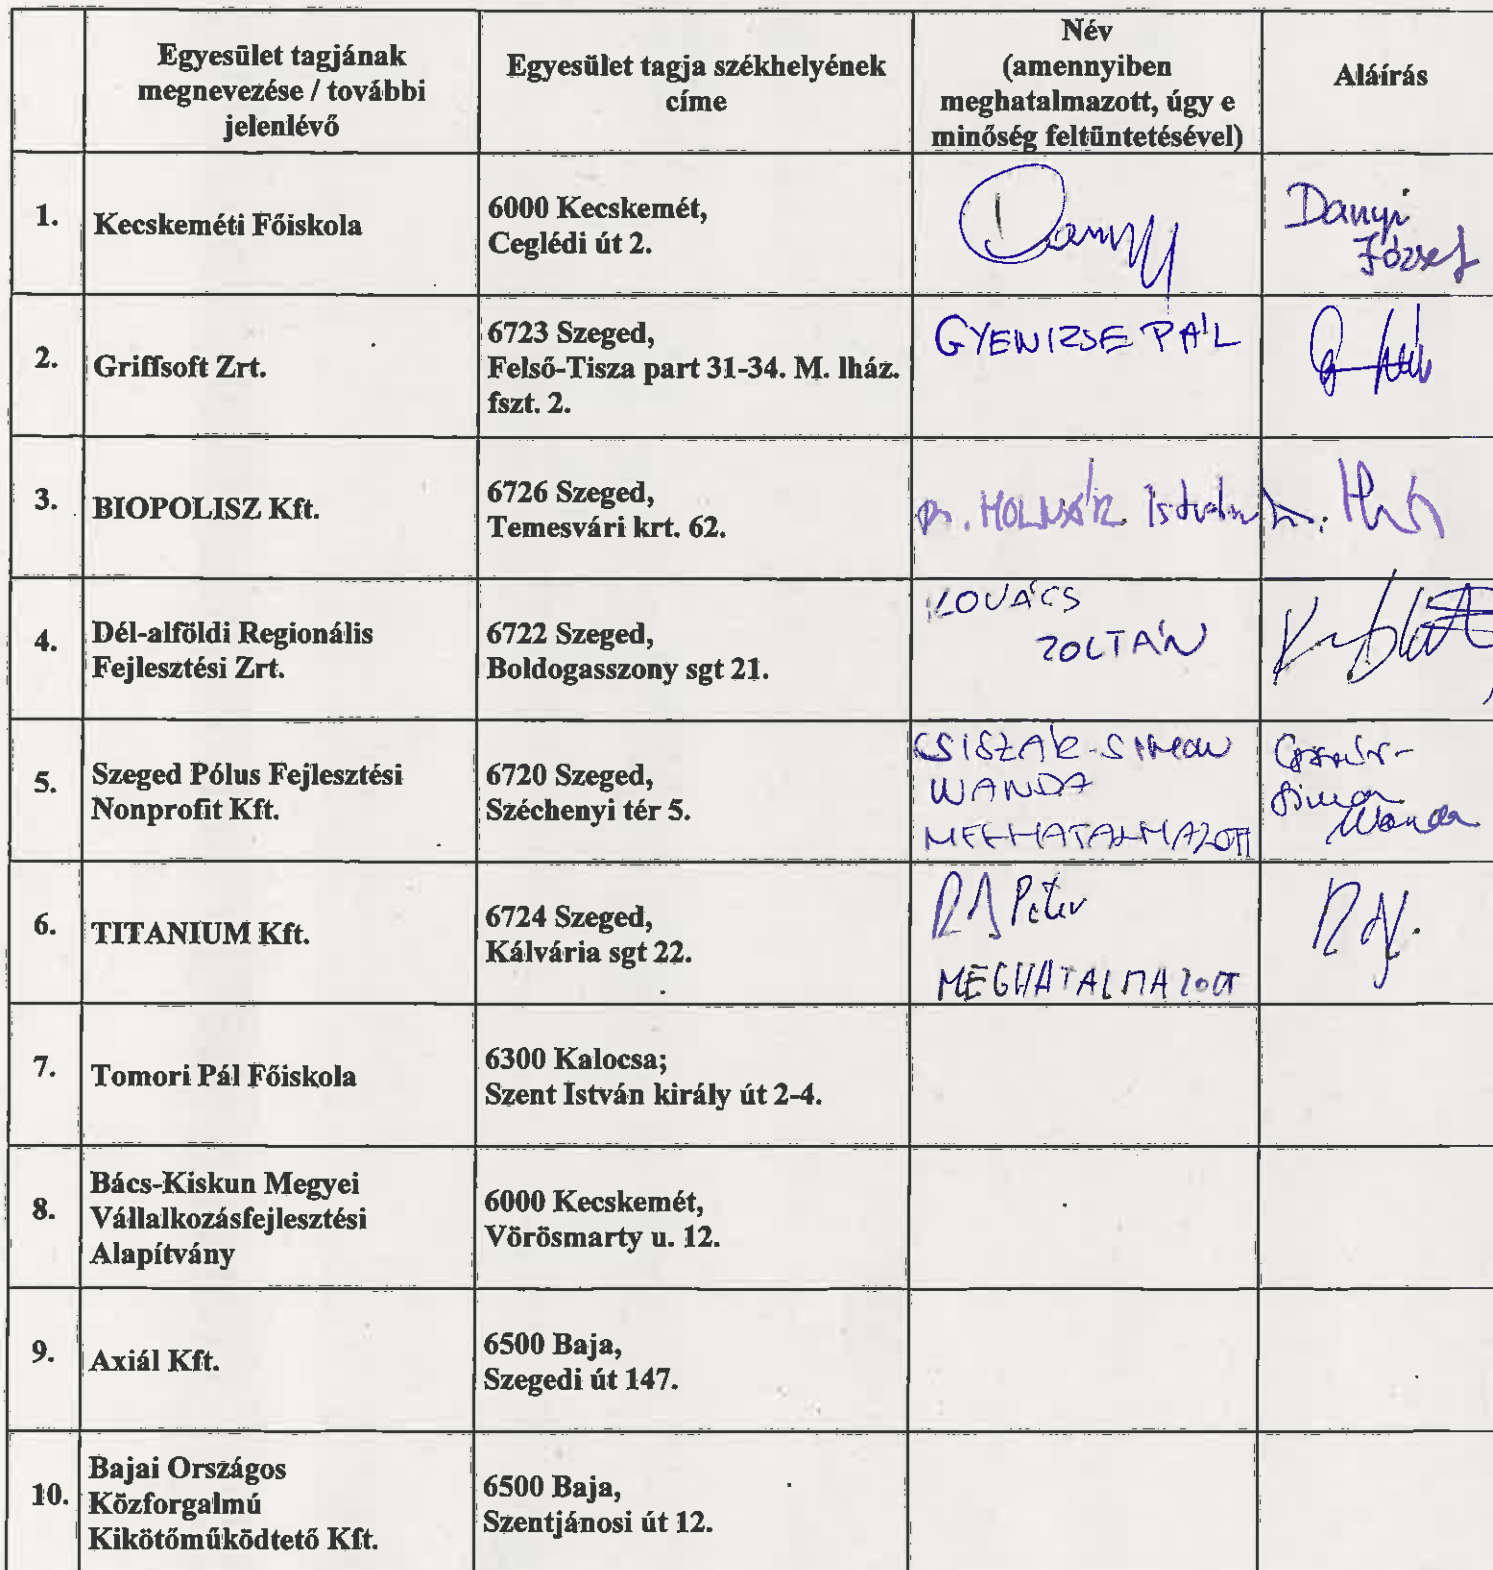 Egyesület tagjának
megnevezése / további
jelenlévő
Egyesület tagja székhelyének
címe
Név
(amennyiben
meghatalmazott, úgy e
minőség feltüntetésével)
Aláírás
1.
Kecskeméti Főiskola
6000 Kecskemét,
Ceglédi út 2.
Danyi
József
2.
Griffsoft Zrt.
6723 Szeged,
Felső-Tisza part 31-34. M. lház.
fszt. 2.
GYENIZSE PÁL
3.
BIOPOLISZ Kft.
6726 Szeged,
Temesvári krt. 62.
Dr. MOLNÁR István
4.
Dél-alföldi Regionális
Fejlesztési Zrt.
6722 Szeged,
Boldogasszony sgt 21.
KOVÁCS
ZOLTÁN
5.
Szeged Pólus Fejlesztési
Nonprofit Kft.
6720 Szeged,
Széchenyi tér 5.
CSISZÁR-SIMON
WANDA
MEGHATALMAZOTT
Simon
Wanda
6.
TITANIUM Kft.
6724 Szeged,
Kálvária sgt 22.
Péter
MEGHATALMAZOTT
7.
Tomori Pál Főiskola
6300 Kalocsa;
Szent István király út 2-4.
8.
Bács-Kiskun Megyei
Vállalkozásfejlesztési
Alapítvány
6000 Kecskemét,
Vörösmarty u. 12.
9.
Axiál Kft.
6500 Baja,
Szegedi út 147.
10.
Bajai Országos
Közforgalmú
Kikötőműködtető Kft.
6500 Baja,
Szentjánosi út 12.